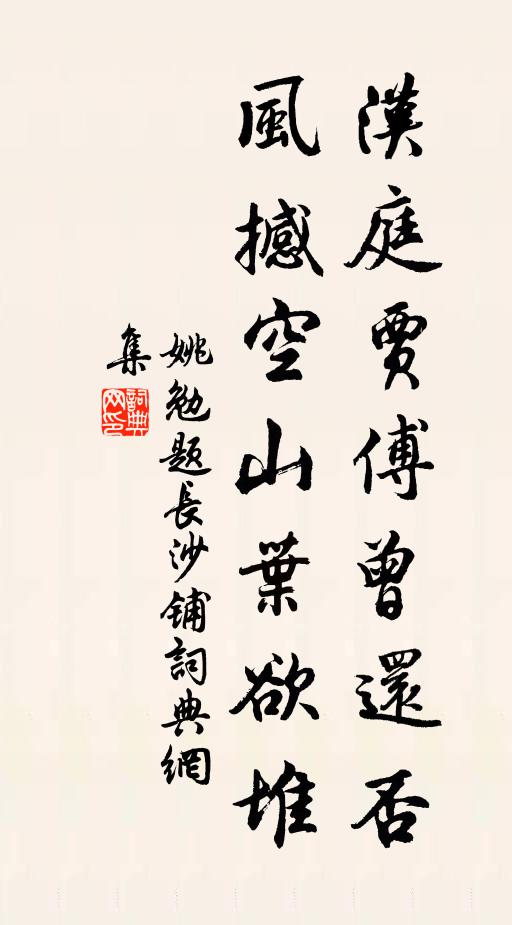 漢庭賈傅曾還否
風撼空山葉欲堆
姚勉題長沙鋪詞典網
集
詞典
网印